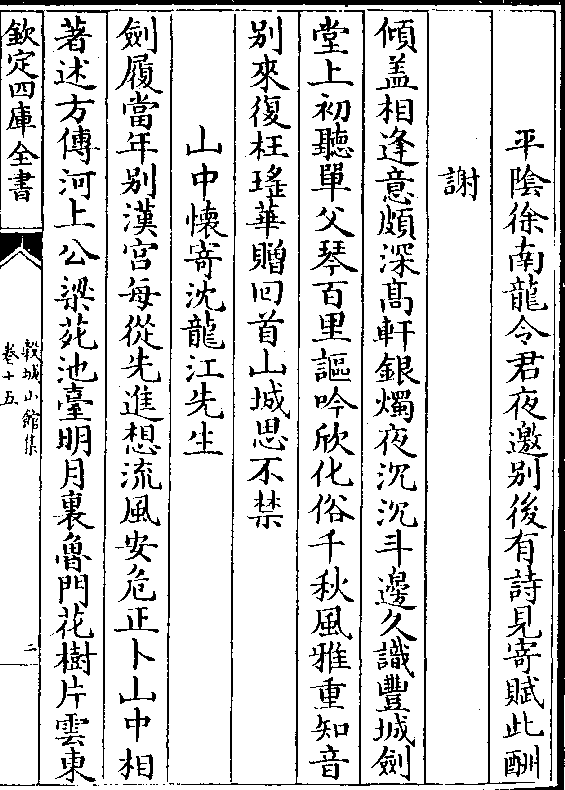 平陰徐南龍令君夜邀别後有詩見寄賦此酬
謝
傾盖相逢意頗深髙軒銀燭夜沉沉斗邊久識豐城劍
堂上初聽單父琴百里謳吟欣化俗千秋風雅重知音
别來復枉瑤華贈囘首山城思不禁
山中懐寄沈龍江先生
劍履當年别漢宫每從先進想流風安危正卜山中相
著述方傳河上公梁苑池臺明月裏魯門花樹片雲東
欽定四庫全書
穀城山館集
卷十五
二